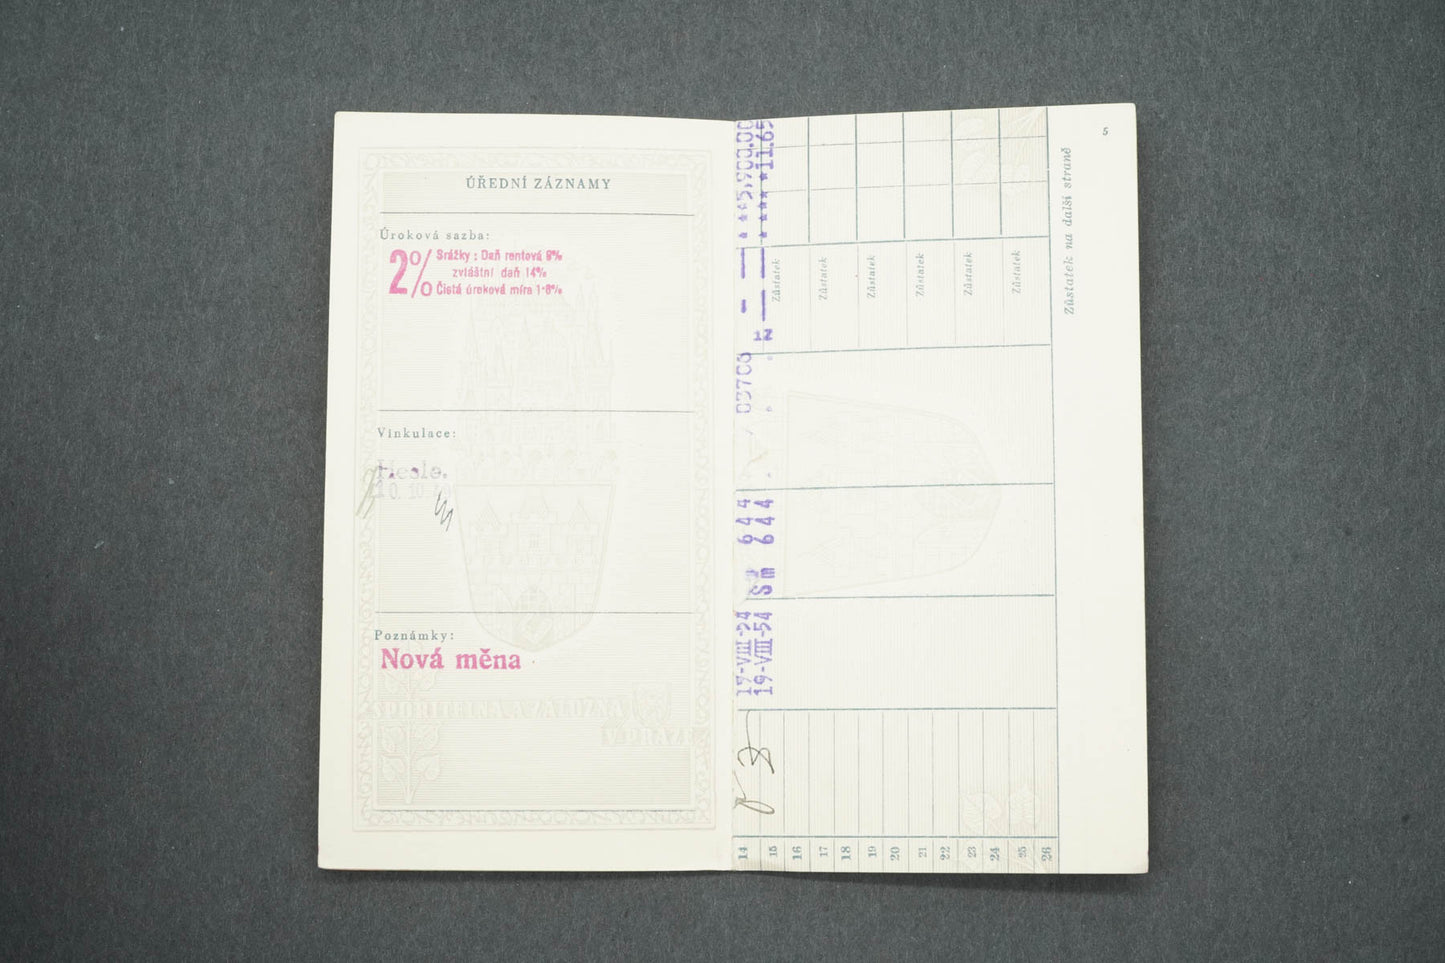 ÚŘEDNÍ ZÁZNAMY
Úroková sazba:
2% Srážky: Daň rentová 8%
zvláštní daň 14%
Čistá úroková míra 1·8%
Vinkulace:
Heslo.
10. 10.
Poznámky:
Nová měna
SPOŘITELNA A ZÁLOŽNA
V PRAZE
5
14 17-VIII-54 644 03706 - — ***5,900.00
15 19-VIII-54 Sm 644 12 — — *****11.65
Zůstatek
Zůstatek
Zůstatek
Zůstatek
Zůstatek
Zůstatek
16
17
18
19
20
21
22
23
24
25
26
Zůstatek na další straně